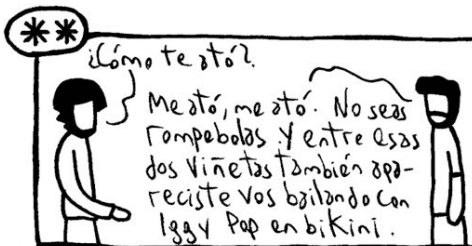 **
¿Cómo te ató?
Me ató, me ató. No seas
rompebolas. Y entre esas
dos viñetas también apa-
reciste vos bailando con
Iggy Pop en bikini.